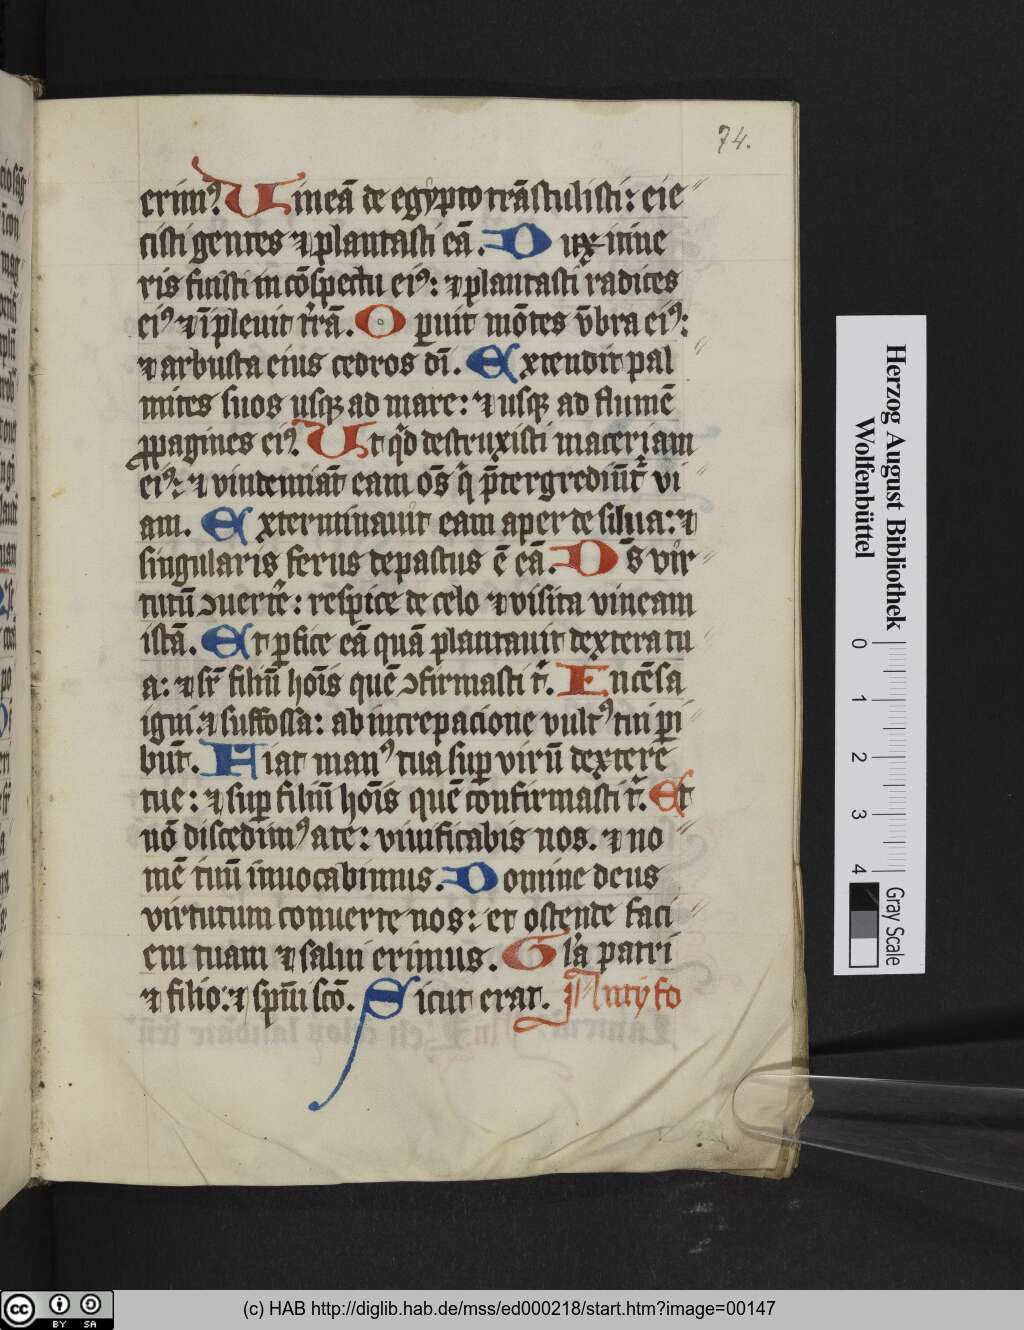 74.
erim⁹. Vineā de egypto trāstulisti: eie
cisti gentes ⁊ plantasti eā. Dux itine
ris fuisti in cōspectu ei⁹: ⁊ plantasti radices
ei⁹ ⁊ īpleuit t̄rā. Operuit mōtes vmbra ei⁹:
⁊ arbusta eius cedros dī. Extendit pal
mites suos usqꝫ ad mare: ⁊ usqꝫ ad flumē
ꝓpagines ei⁹. Vt qͥd destruxisti maceriam
ei⁹: ⁊ vindemiāt eam oēs qͥ p̄tergrediūt᷑ vi
am. Exterminauit eam aper de silua: ⁊
singularis ferus depastus ē eā. Ds̄ vir
tutū ꝯuertē: respice de celo ⁊ visita vineam
istā. Et ꝑfice eā quā plantauit dextera tu
a: ⁊ sr̄ filiū hoīs quē ꝯfirmasti t̄. Encēsa
igni: ⁊ suffossa: ab increpacione vult⁹ tui peri
būt. Fiat man⁹ tua suꝑ virū dextere
tue: ⁊ suꝑ filiū hoīs quē cōnfirmasti t̄. Et
nō discedim⁹ a te: viuificabis nos. ⁊ no
mē tuū inuocabimus. Domine deus
virtutum conuerte nos: et ostende faci
em tuam ⁊ salui erimus. Gl̄a patri
⁊ filio: ⁊ spūi scō. Sicut erat. Antyfo
Herzog August Bibliothek
Wolfenbüttel
0 1 2 3 4
Gray Scale
cc BY SA
(c) HAB http://diglib.hab.de/mss/ed000218/start.htm?image=00147